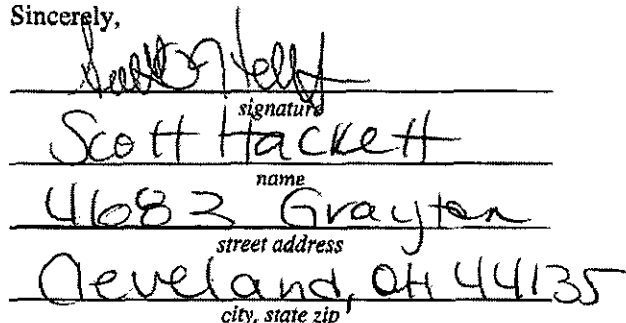 Sincerely,
signature
Scott Hackett
name
4683 Grayton
street address
Cleveland, OH 44135
city, state zip